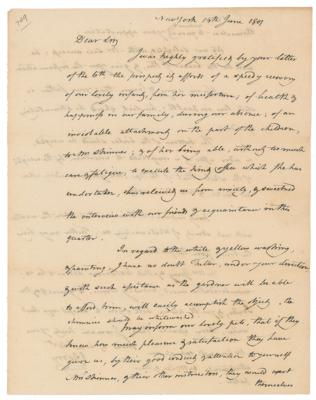 709
New York 14th June 1807
Dear Sir,
I was highly gratified by your letter
of the 6th the prospect it affords of a speedy recovery
of our lovely infants, from her misfortune, of health &
happiness in our family, during our absence, of an
inviolable attachment on the part of the children,
for Mrs Skinner, & of her being able, without too much
care & fatigue, to execute the kind offices which she has
undertaken, has relieved us from anxiety, & sweetened
the interviews with our friends & acquaintance in this
quarter.
In regard to the white & yellow washing,
& painting, I have no doubt under your direction
& with such assistance as the gardner will be able
to afford him, will easily accomplish the object, the
chimnies should be whitewashed
May inform our lovely pets, that if they
knew how much pleasure & satisfaction they have
given us, by their good conduct & attention to yourself
Mrs Skinner, & their other instructors, they would exert
themselves